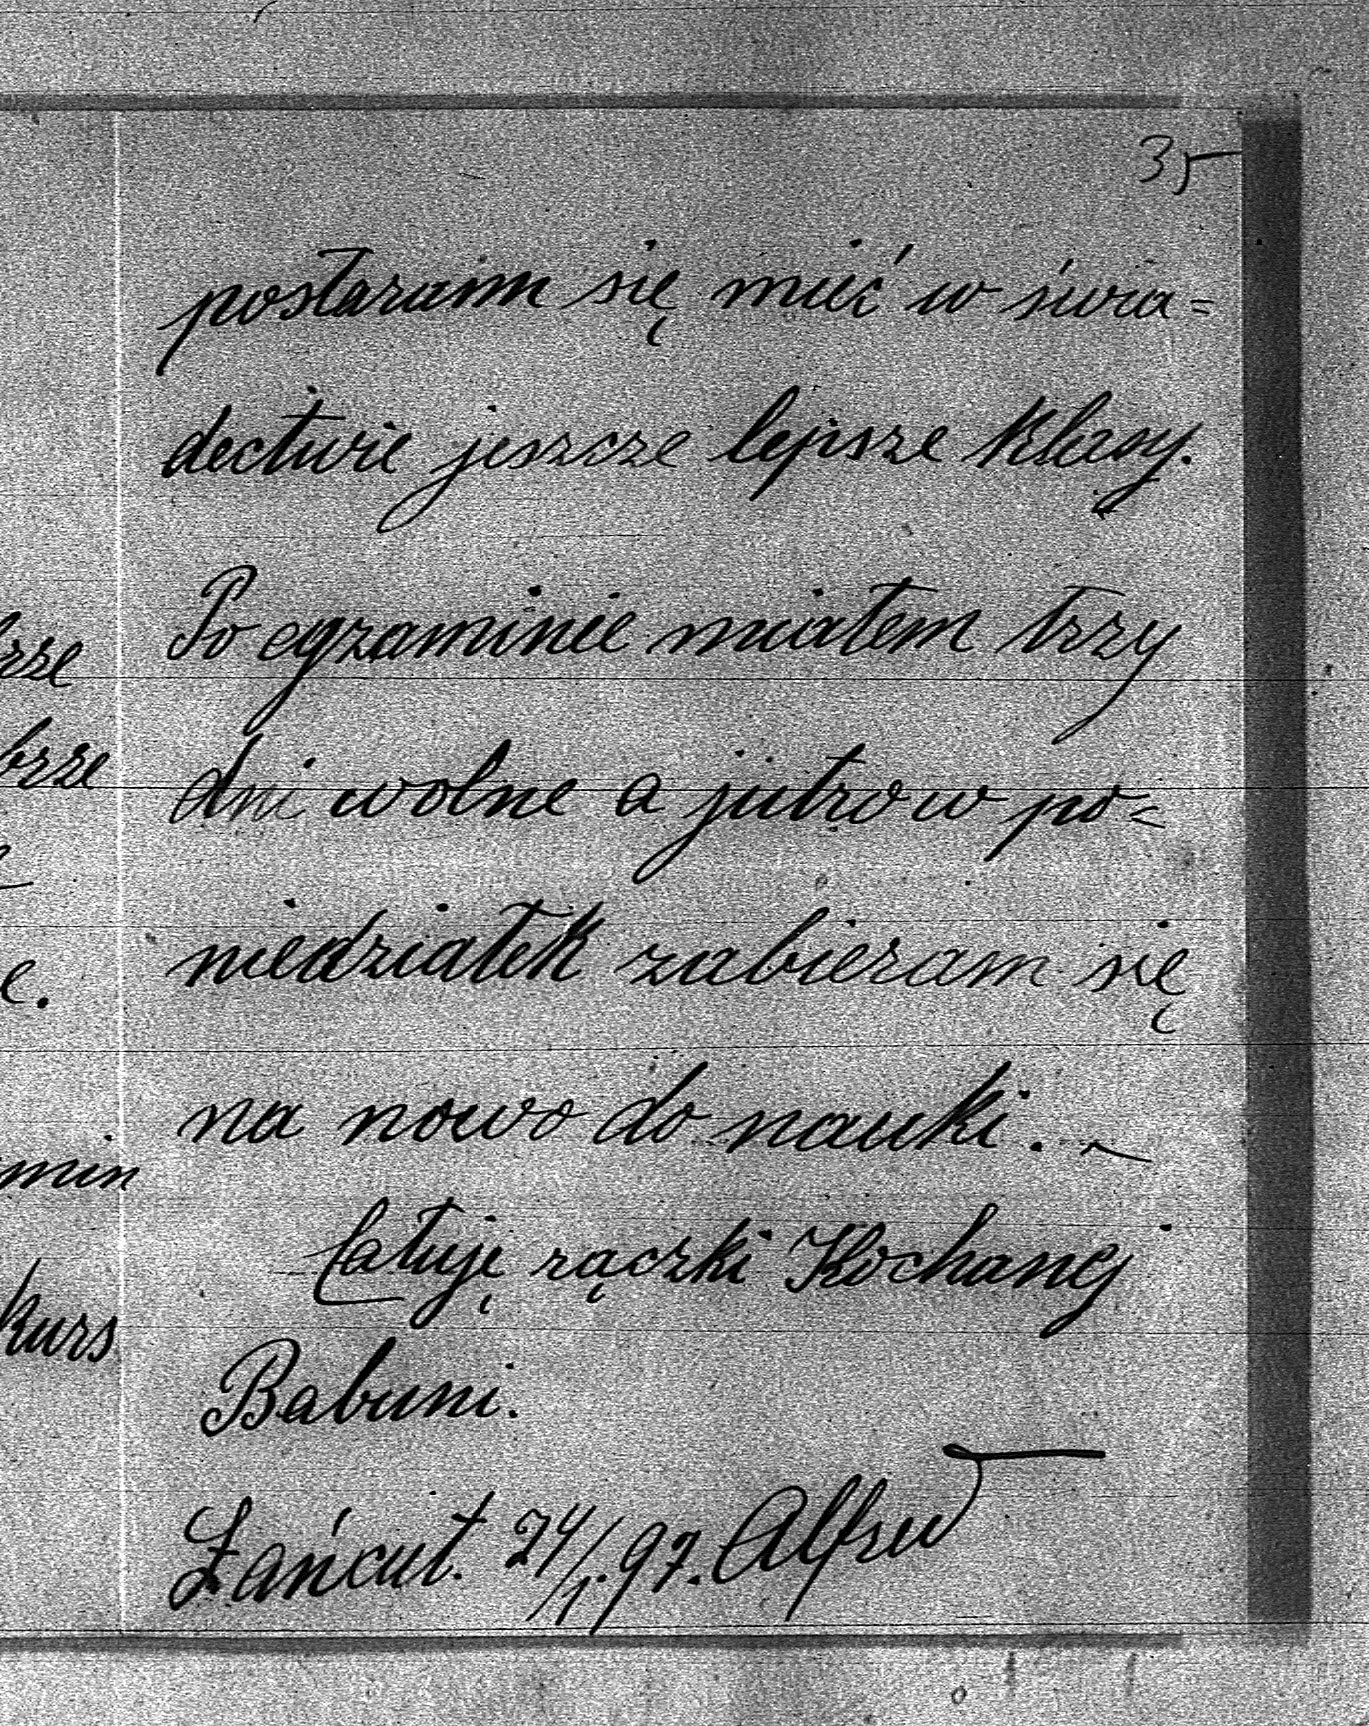 35
postaram się mieć w świa=
dectwie jeszcze lepsze klasy.
Po egzaminie miałem trzy
dni wolne a jutro w po=
niedziałek zabieram się
na nowo do nauki. _
Całuję rączki Kochanej
Babuni.
Łańcut. 24/1. 97. Alfred
rze
brze
e.
min
kurs